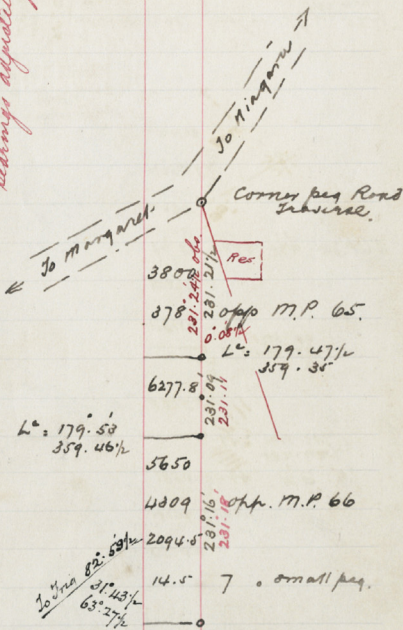 bearings adjusted
To Niagara
To Margaret
Corner peg Road
Traverse.
Res
380
231.24½ obs.
231.21½
378 opp M.P. 65.
0.08½
Lᶜ = 179.47½
359.35
6277.8
231.09
231.11
Lᶜ = 179°.53
359.46½
5650
4309 opp. M.P. 66
231°16'
231.18
2094.5
To Trig 82°.59½
31°.43½
63°.27½
14.5 7 . small peg.